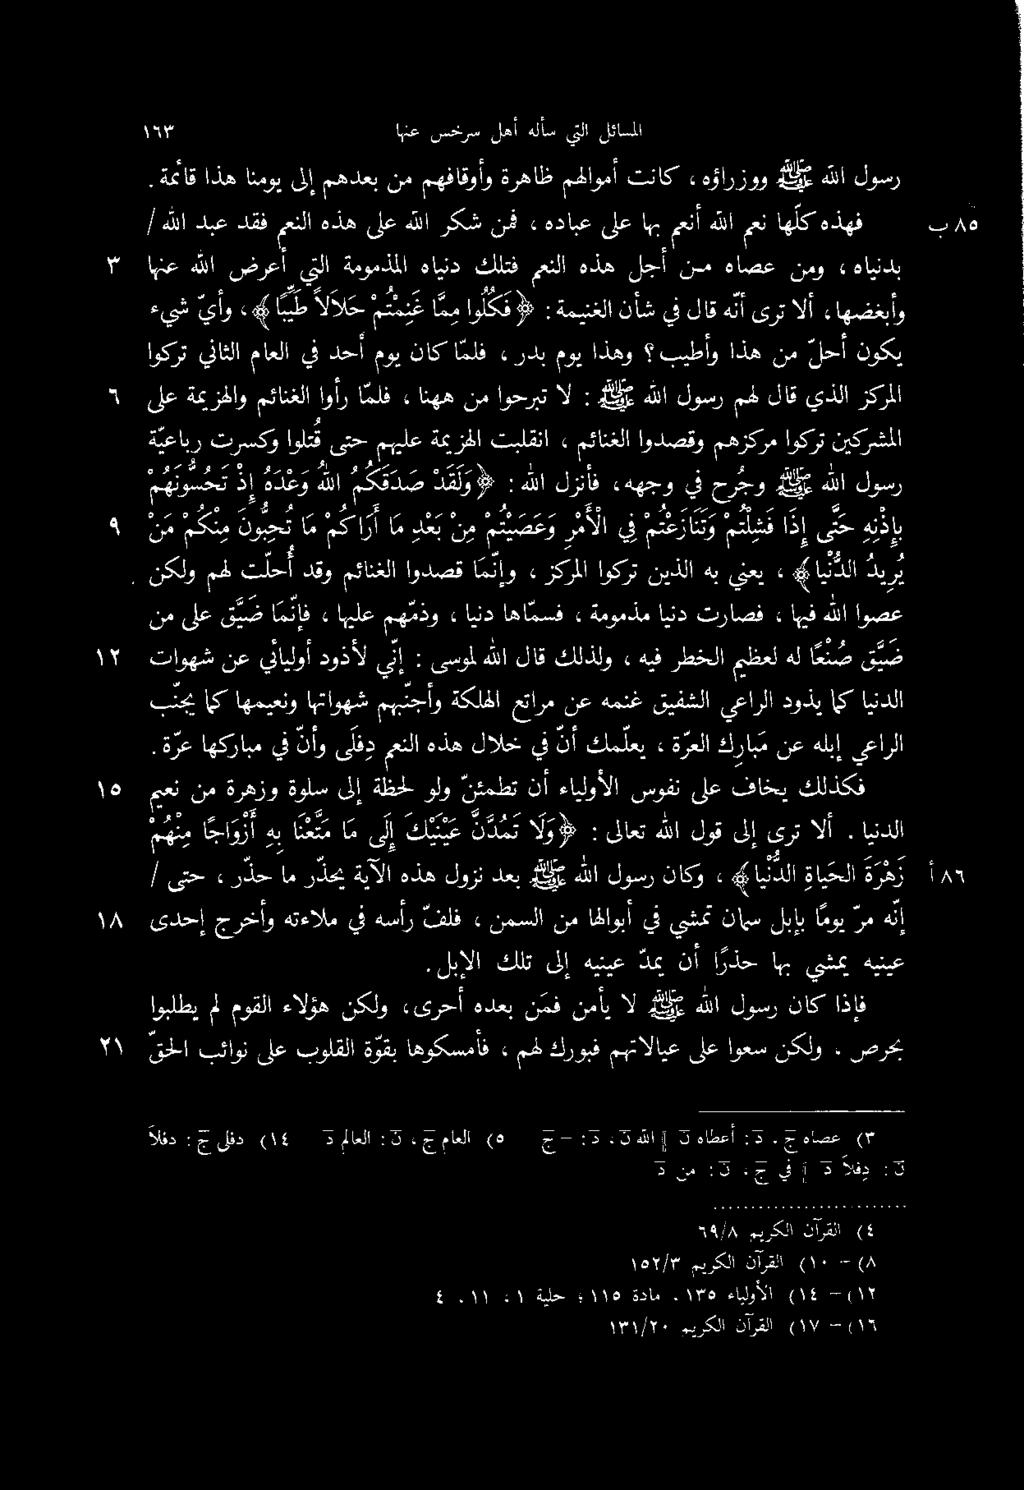 المسائل التي سأله أهل سرخس عنها ١٦٣
رسول الله ﷺ ووزراؤه، كانت أموالهم ظاهرة وأوقافهم من بعدهم إلى يومنا هذا قائمة.
فهذه كلّها نعم الله أنعم بها على عباده، فمن شكر الله على هذه النعم فقد عبد الله / ٨٥ ب
بدنياه، ومن عصاه من أجل هذه النعم فتلك دنياه المذمومة التي أعرض الله عنها ٣
وأبغضها، ألا ترى أنّه قال في شأن الغنيمة: ﴿فَكُلُوا مِمَّا غَنِمْتُمْ حَلاَلاً طَيِّبًا﴾، وأيّ شيء
يكون أحلّ من هذا وأطيب؟ وهذا يوم بدر، فلمّا كان يوم أحد في العام الثاني تركوا
المركز الذي قال لهم رسول الله ﷺ: لا تبرحوا من ههنا، فلمّا رأوا الغنائم والهزيمة على ٦
المشركين تركوا مركزهم وقصدوا الغنائم، انقلبت الهزيمة عليهم حتى قُتلوا وكسرت رباعيّة
رسول الله ﷺ وجُرح في وجهه، فأنزل الله: ﴿وَلَقَدْ صَدَقَكُمُ اللهُ وَعْدَهُ إِذْ تَحُسُّونَهُمْ
بِإِذْنِهِ حَتَّى إِذَا فَشِلْتُمْ وَتَنَازَعْتُمْ فِي الْأَمْرِ وَعَصَيْتُمْ مِنْ بَعْدِ مَا أَرَاكُمْ مَا تُحِبُّونَ مِنْكُمْ مَنْ ٩
يُرِيدُ الدُّنْيا﴾، يعني به الذين تركوا المركز، وإنّما قصدوا الغنائم وقد أُحلّت لهم ولكن
عصوا الله فيها، فصارت دنيا مذمومة، فسمّاها دنيا، وذمّهم عليها، فإنّما ضَيَّق على من
ضَيَّق صُنْعًا له لعظيم الخطر فيه، ولذلك قال الله لموسى: إنّي لأذود أوليائي عن شهوات ١٢
الدنيا كما يذود الراعي الشفيق غنمه عن مراتع الهلكة وأجنّبهم شهواتها ونعيمها كما يجنّب
الراعي إبله عن مَبارِك العرّة، يعلّمك أنّ في خلال هذه النعم دِفلَى وأنّ في مباركها عرّة.
فكذلك يخاف على نفوس الأولياء أن تطمئنّ ولو لحظة إلى سلوة وزهرة من نعيم ١٥
الدنيا. ألا ترى إلى قول الله تعالى: ﴿وَلاَ تَمُدَّنَّ عَيْنَيْكَ إِلَى مَا مَتَّعْنَا بِهِ أَزْوَاجًا مِنْهُمْ
زَهْرَةَ الحَيَاةِ الدُّنْيا﴾، وكان رسول الله ﷺ بعد نزول هذه الآية يحذّر ما حذّر، حتى / ٨٦ أ
إنّه مرّ يومًا بإبل سمان تمشي في أبوالها من السمن، فلفّ رأسه في ملاءته وأخرج إحدى ١٨
عينيه يمشي بها حذرًا أن يمدّ عينيه إلى تلك الإبل.
فإذا كان رسول الله ﷺ لا يأمن فمَن بعده أحرى، ولكن هؤلاء القوم لم يطلبوا
بحرص، ولكن سعوا على عيالاتهم فبورك لهم، فأمسكوها بقوّة القلوب على نوائب الحقّ ٢١
٣) عصاه ج، د: أعطاه ن || الله ن، د: - ج ٥) العام ج، ن: العالم د ١٤) دفلى ج: دفلاً
ن: دِفلاً د || في ج، ن: من د
٤) القرآن الكريم ٦٩/٨
٨) – ١٠) القرآن الكريم ١٥٢/٣
١٢) – ١٤) الأولياء ١٣٥، مادة ١١٥؛ حلية ١، ١١، ٤
١٦) – ١٧) القرآن الكريم ١٣١/٢٠